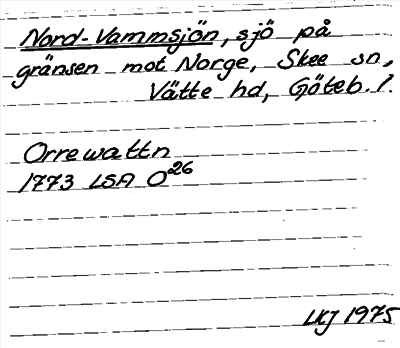 Nord-Vammsjön, sjö på
gränsen mot Norge, Skee sn,
Vätte hd, Göteb. l.
Orrewattn
1773 LSA O²⁶
LKJ 1975